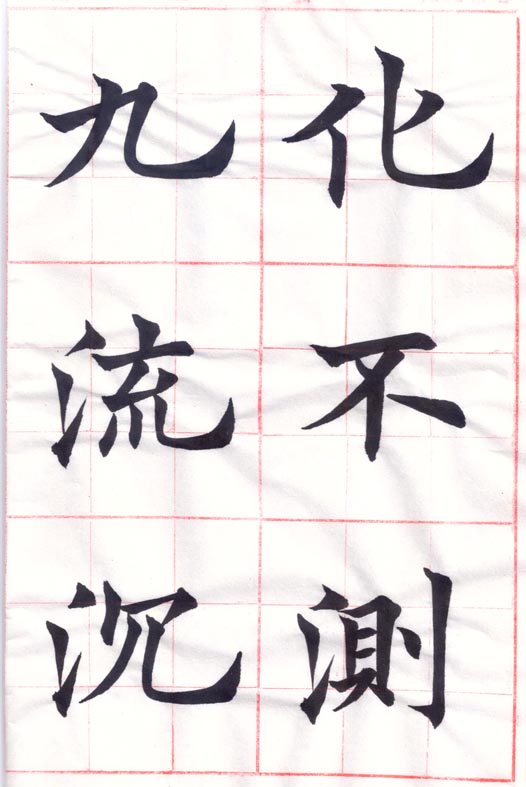 化不測
九流沉